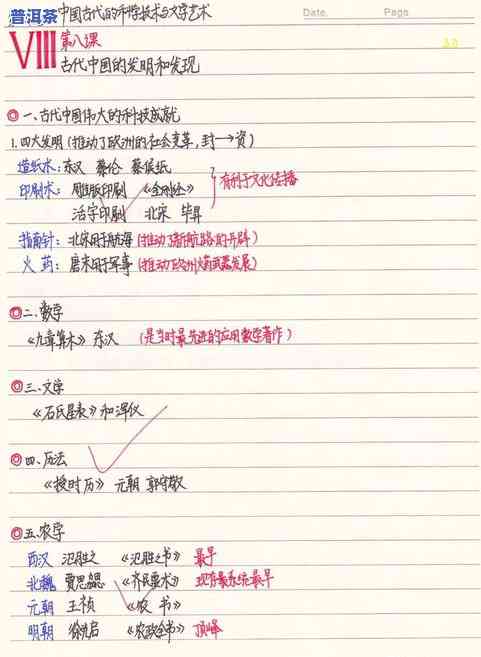 普洱茶 中国古代的科学技术与文学艺术
Date. Page
VIII 第八课
古代中国的发明和发现
一、古代中国伟大的科技成就
1.四大发明(推动了欧洲的社会变革,封→资)
造纸术:东汉 蔡伦 蔡侯纸
印刷术:雕版印刷 《金刚经》 有利于文化传播
活字印刷 北宋 毕昇
指南针:北宋用于航海(推动了新航路的开辟)
火药:唐末用于军事(推动了欧洲火药武器发展)
二、数学
《九章算术》东汉 (是当时最先进的应用数学著作)
三、文学
《石氏星表》和浑仪
四、历法
《授时历》 元朝 郭守敬
五、农学
西汉 氾胜之 《氾胜之书》 最早
北魏 贾思勰 《齐民要术》 现存最系统最早
元朝 王祯 《农 书》
明朝 徐光启 《农政全书》 顶峰